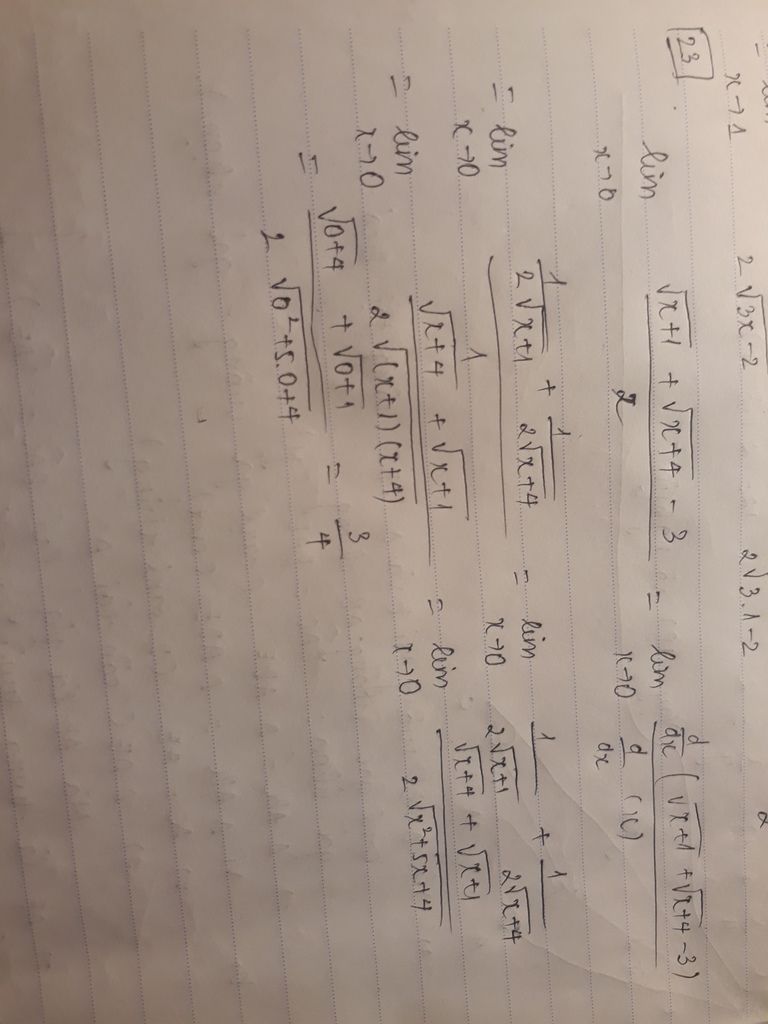 = lim x→1 2√3x-2 2√3.1-2 2
23. lim x→0 (√x+1 + √x+4 - 3)/x = lim x→0 (d/dx (√x+1 + √x+4 - 3))/(d/dx (x))
= lim x→0 (1/(2√x+1) + 1/(2√x+4))/1 = lim x→0 1/(2√x+1) + 1/(2√x+4)
= lim x→0 (√x+4 + √x+1)/(2√(x+1)(x+4)) = lim x→0 (√x+4 + √x+1)/(2√x²+5x+4)
= (√0+4 + √0+1)/(2√0²+5.0+4) = 3/4